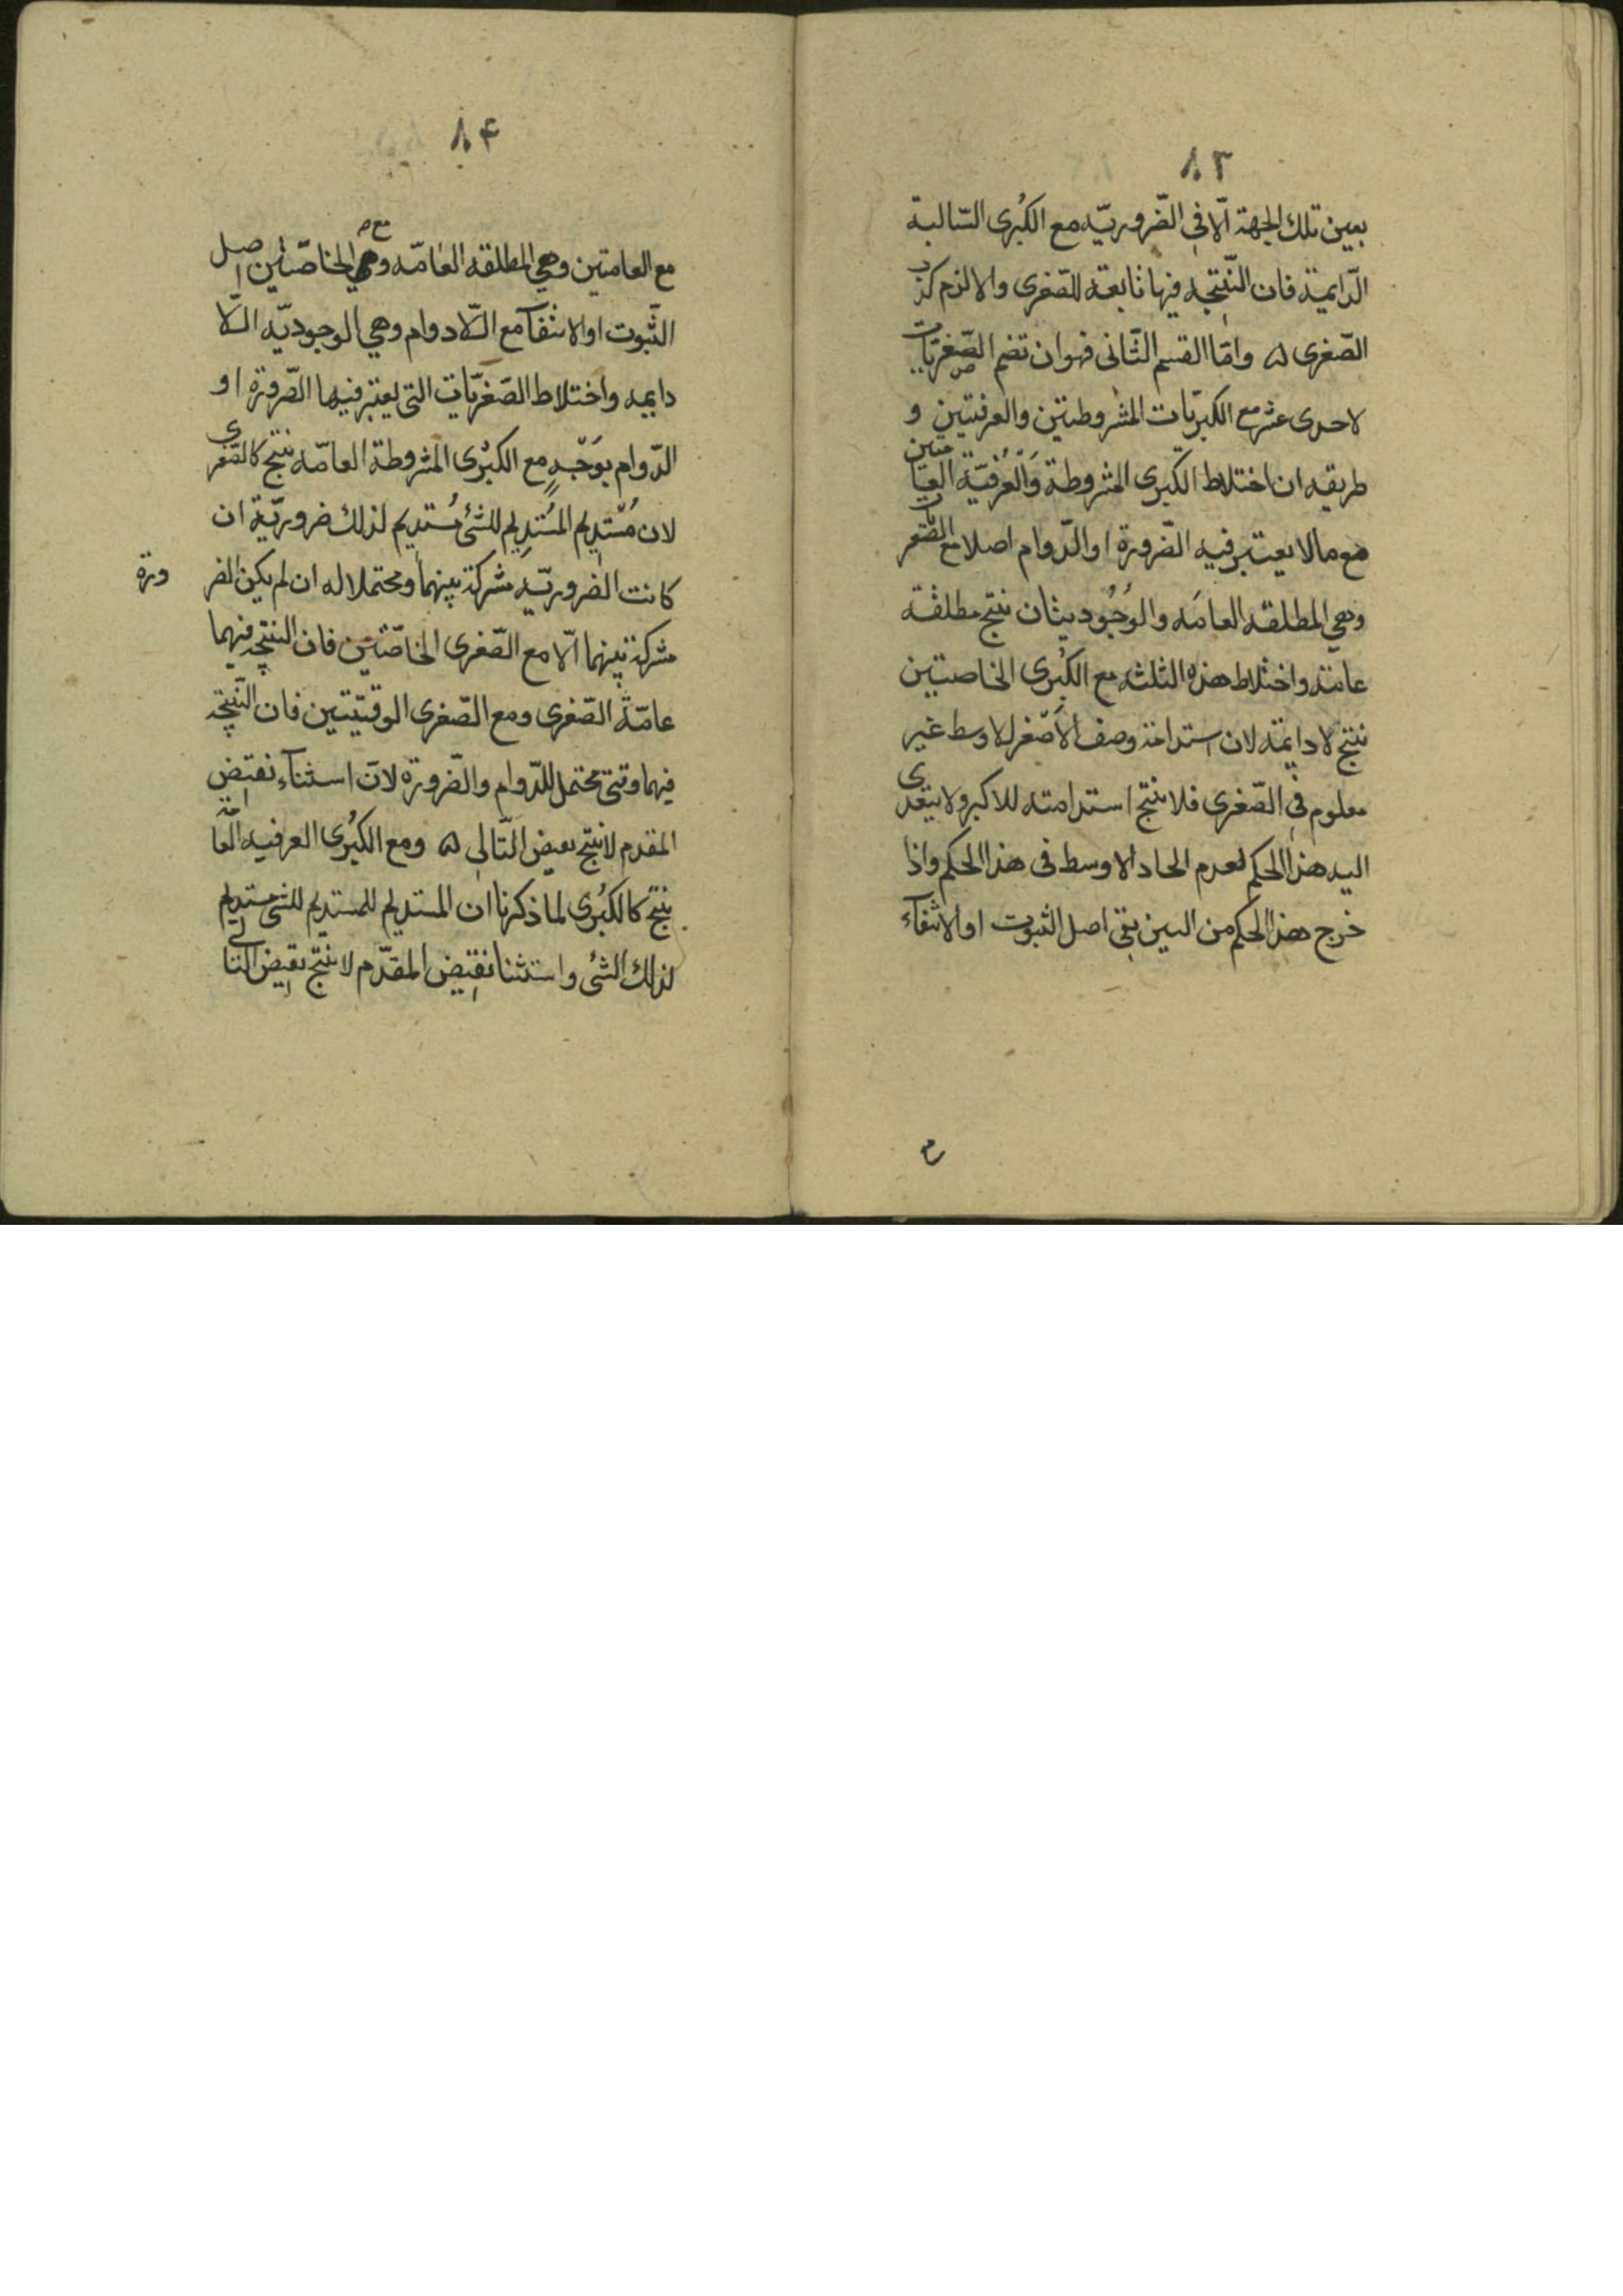 ٨٣
بعين تلك الجهة الّا فى الضّروريّه مع الكُبرى السّالبة
الدّايمية فان النّتيجه فيها تابعة للصّغرى والا لزم كذب
الصّغرى ۵ وامّا القسم الثّانى فهو ان تضم الصّغريّات
لاحدى عشر مع الكبريّات المشروطتين والعرفيتين و
طريقه ان اختلاط الكبرى المشروطة وَالْعُرْفيّة العامتين
مع مالا يعتبر فيه الضّرورة او الدّوام اصلا مع الصّغريات
وهي المطلقه العامَه والوُجُوديتان نتتج مطلقة
عامّة واختلاط هذه الثلثه مع الكُبرى الخاصتيين
نتتج لا دايمّة لان استدامة وصف الاَصْغر لاوسط غير
معلوم فى الصّغرى فلا ننتج استدامته للاكبر ولا يتعدى
اليه هذا الحكم لعدم الحاد الاوسط فى هذا الحكم واذا
خرج هذا الحكم من البين بقى اصل الثبوت او الانتفاء
مع
٨۴
مع العامتين وهي المطلقه العَامّه وهي مع الخاصّتين اصل
الثّبوت او الانتفاء مع الّلا دوام وهي الوجوديّه الّلا
دايمه واختلاط الصّغريّات التى يعتبر فيها الضّرورة او
الدّوام بوَجْهٍ مع الكبرْى المشروطة العامّه ننتج كالصّغرى
لان مُسْتديم المُستدِيم للشئ مُستديم لذلك ضروريّة ان
كانت الضروريّه مشركة بينهما ومحتملا له ان لم يكن الضرورة
مشركة بينهما الّا مع الصّغرى الخاصّتين فان النتتجه فيهما
عامّةُ الصّغرى ومع الصّغرى الوقتيّتين فان النّتيجه
فيهما وقتى محتمل للدّوام والضّرورة لانّ استثناء نقيض
المقدم لا ينتج نقيض التّالى ۵ ومع الكُبرى العرفيه العامة
ينتج كالكبُرى لما ذكرنا ان المستديم للمستديم للشئ مستديم
لذلك الشئ واستثنا نقيض المقدّم لا ينتج نقيض التالى